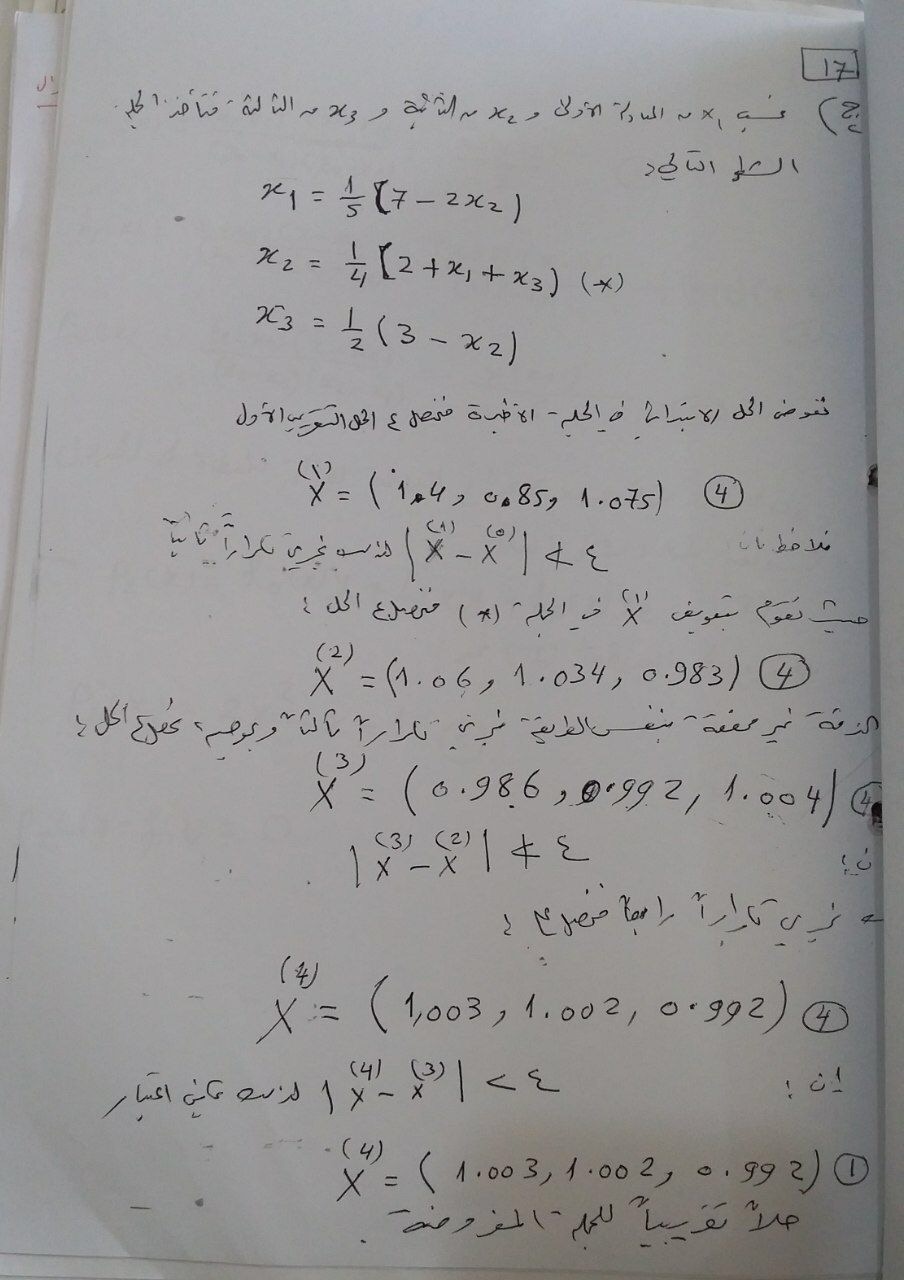 17
ج) نحسب x₁ من المعادلة الأولى و x₂ من الثانية و x₃ من الثالثة فتأخذ الجملة
الشكل التالي:
x₁ = 1/5 [7 − 2x₂)
x₂ = 1/4 [2 + x₁ + x₃) (*)
x₃ = 1/2 (3 − x₂)
نعوض الحل الابتدائي في الجملة الأخيرة فنحصل ع الحل التقريبي الأول
X⁽¹⁾ = (1.4, 0.85, 1.075) ④
نلاحظ بأن |X⁽¹⁾ − X⁽⁰⁾| ≮ ε لذلك نجري تكراراً ثانياً
حيث نقوم بتعويض X⁽¹⁾ في الجملة (*) فنحصل ع الحل:
X⁽²⁾ = (1.06, 1.034, 0.983) ④
الدقة غير محققة بنفس الطريقة نجري تكراراً ثالثاً الحل:
X⁽³⁾ = (0.986, 0.992, 1.004) ④
|X⁽³⁾ − X⁽²⁾| ≮ ε
نجري تكراراً رابعاً فنحصل ع:
X⁽⁴⁾ = (1,003, 1.002, 0.992) ④
إن: |X⁽⁴⁾ − X⁽³⁾| < ε لذلك اعتبار
X⁽⁴⁾ = (1.003, 1.002, 0.992) ①
حلاً تقريبياً للجملة المفروضة.